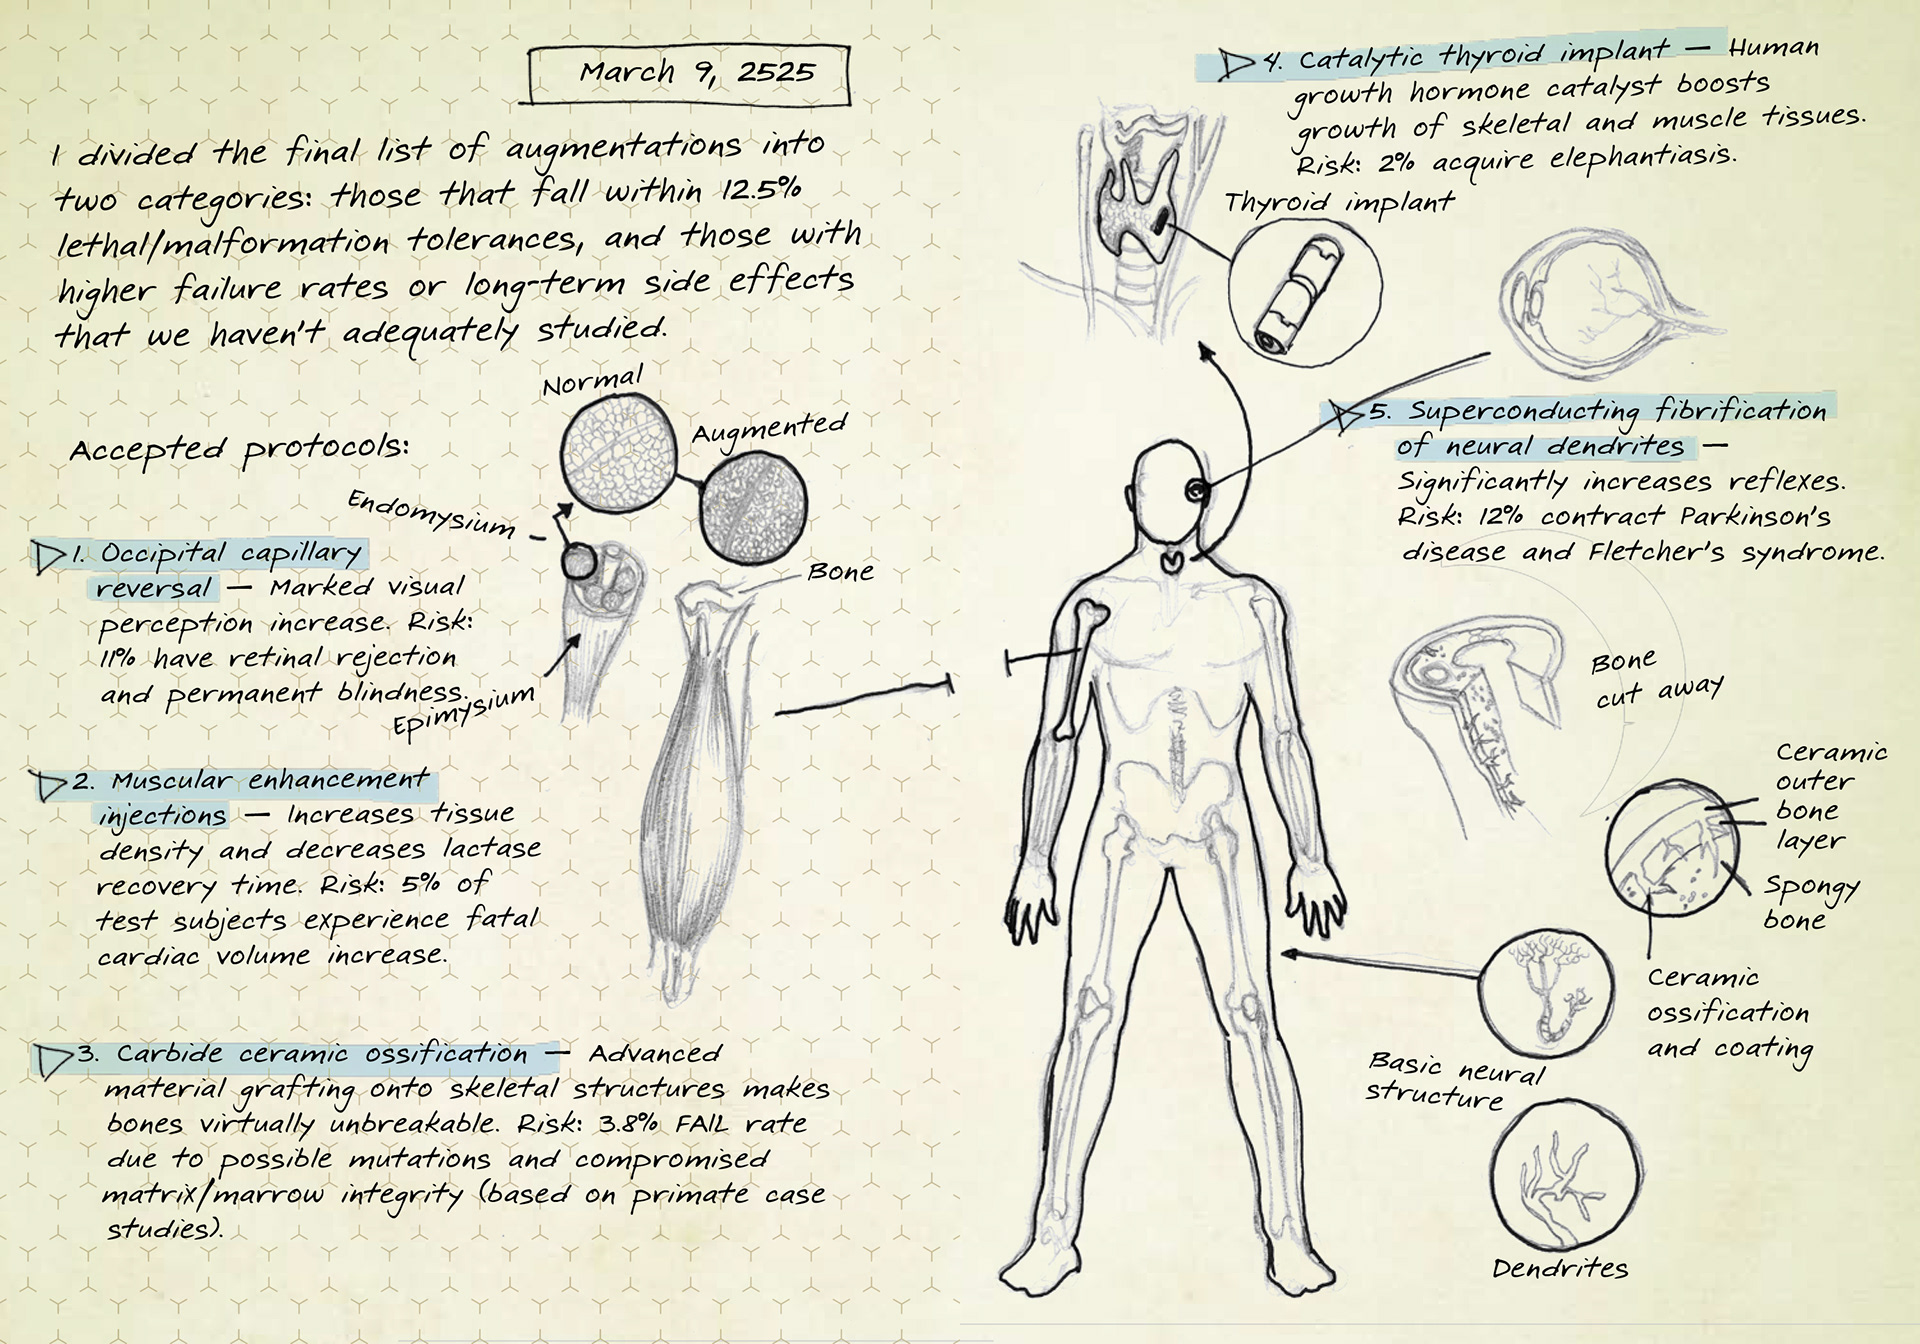 March 9, 2525
I divided the final list of augmentations into
two categories: those that fall within 12.5%
lethal/malformation tolerances, and those with
higher failure rates or long-term side effects
that we haven't adequately studied.
Normal
Augmented
Accepted protocols:
Endomysium
Bone
Epimysium
1. Occipital capillary
reversal — Marked visual
perception increase. Risk:
11% have retinal rejection
and permanent blindness.
2. Muscular enhancement
injections — Increases tissue
density and decreases lactase
recovery time. Risk: 5% of
test subjects experience fatal
cardiac volume increase.
3. Carbide ceramic ossification — Advanced
material grafting onto skeletal structures makes
bones virtually unbreakable. Risk: 3.8% FAIL rate
due to possible mutations and compromised
matrix/marrow integrity (based on primate case
studies).
4. Catalytic thyroid implant — Human
growth hormone catalyst boosts
growth of skeletal and muscle tissues.
Risk: 2% acquire elephantiasis.
Thyroid implant
5. Superconducting fibrification
of neural dendrites —
Significantly increases reflexes.
Risk: 12% contract Parkinson's
disease and Fletcher's syndrome.
Bone
cut away
Ceramic
outer
bone
layer
Spongy
bone
Ceramic
ossification
and coating
Basic neural
structure
Dendrites